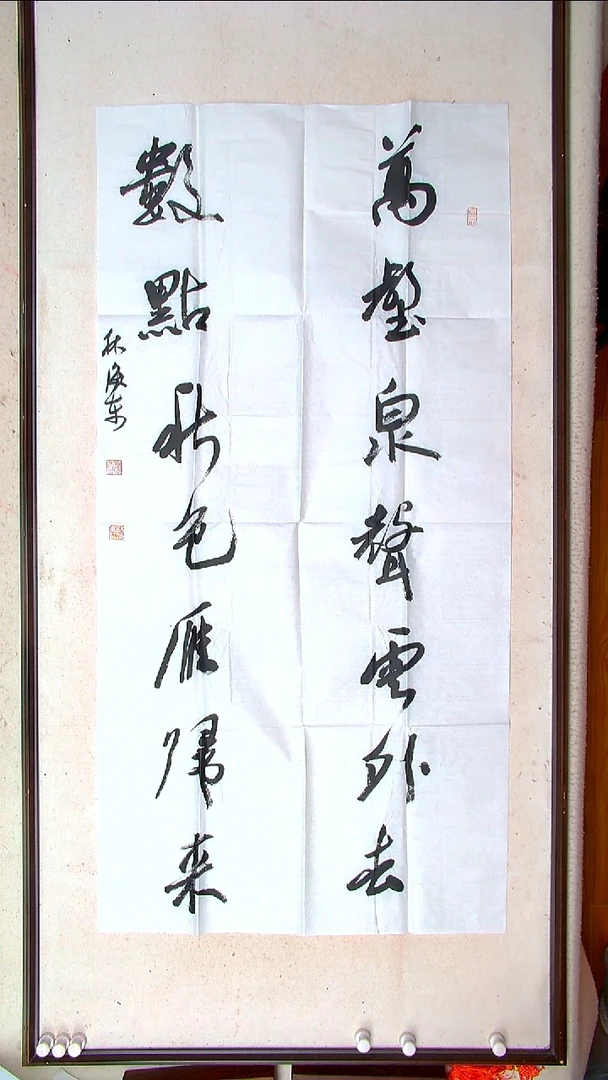 萬壑泉聲雲外去
數點秋色雁歸來
林海東